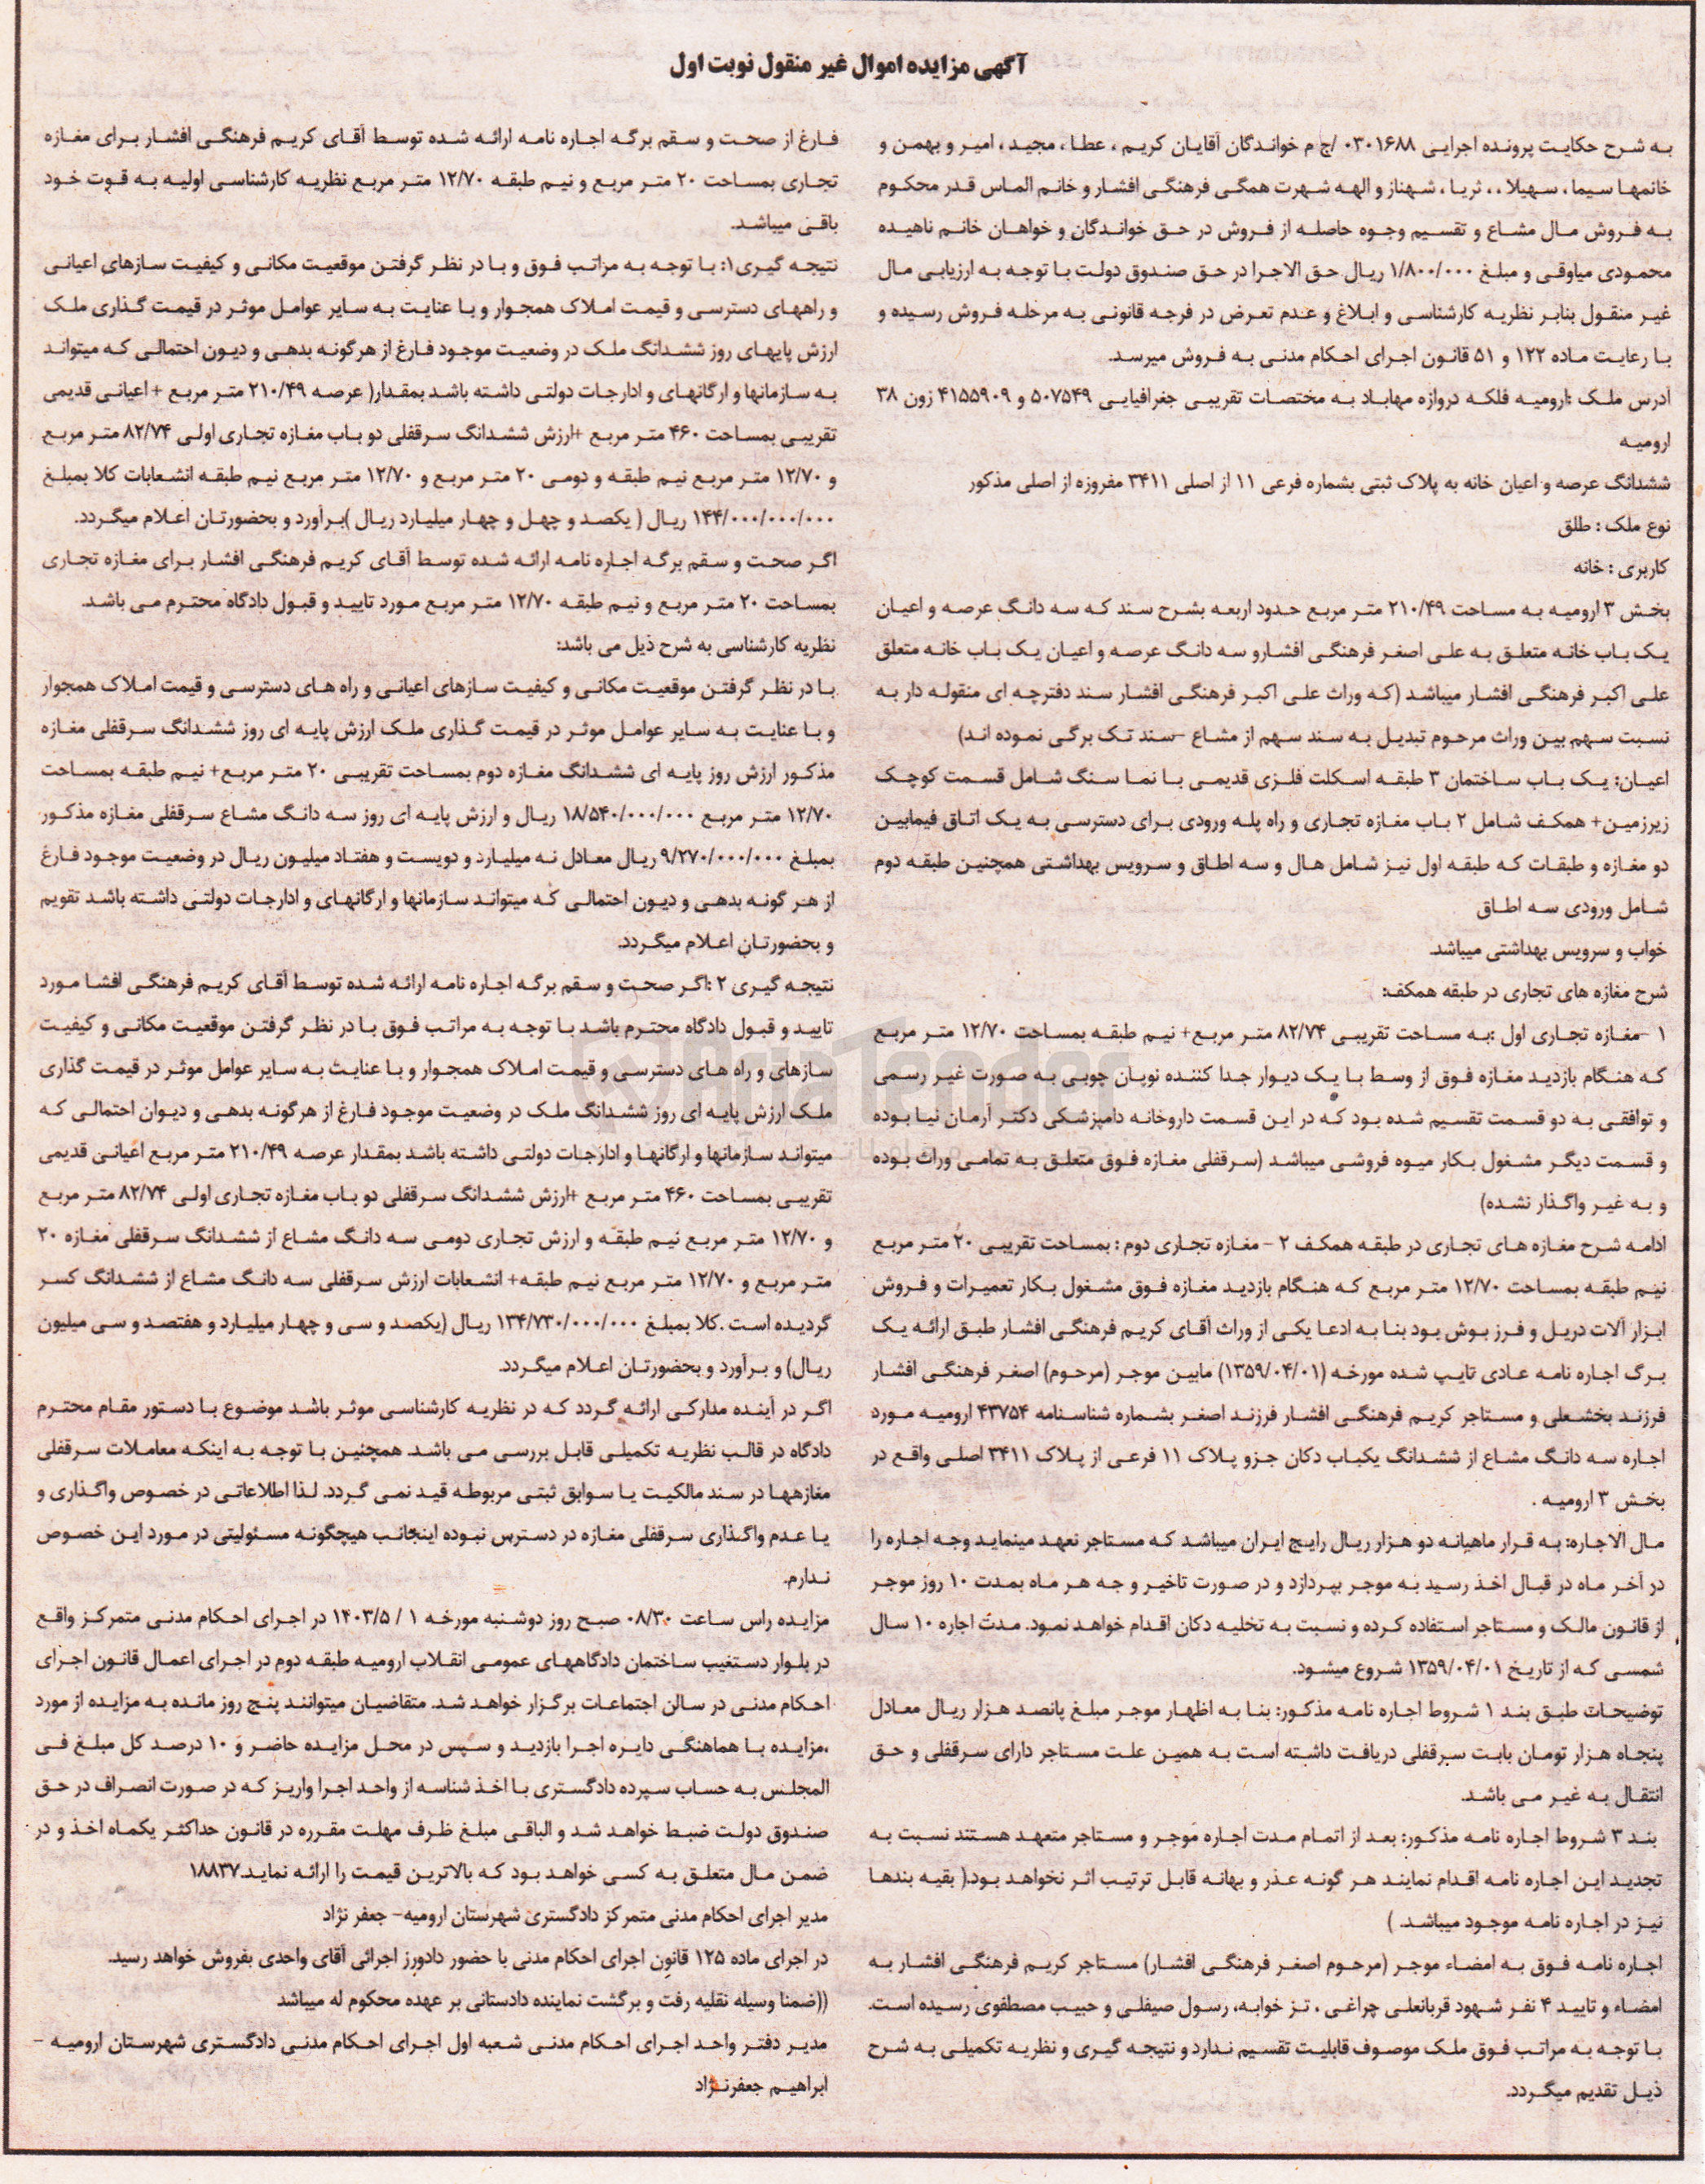 آگهی مزایده اموال غیر منقول نوبت اول
به شرح حکایت پرونده اجرایی ۰۳۰۱۶۸۸ /ج م خواندگان آقایان کریم ، عطا ، مجید ، امیر و بهمن و
خانمها سیما ، سهیلا ، ، ثریا ، شهناز و الهه شهرت همگی فرهنگی افشار و خانم الماس قدر محکوم
به فروش مال مشاع و تقسیم وجوه حاصله از فروش در حق خواندگان و خواهان خانم ناهیده
محمودی میاوقی و مبلغ ۱/۸۰۰/۰۰۰ ریال حق الاجرا در حق صندوق دولت با توجه به ارزیابی مال
غیر منقول بنابر نظریه کارشناسی و ابلاغ و عدم تعرض در فرجه قانونی به مرحله فروش رسیده و
با رعایت ماده ۱۲۲ و ۵۱ قانون اجرای احکام مدنی به فروش میرسد.
آدرس ملک :ارومیه فلکه دروازه مهاباد به مختصات تقریبی جغرافیایی ۵۰۷۵۴۹ و ۴۱۵۵۹۰۹ زون ۳۸
ارومیه
ششدانگ عرصه و اعیان خانه به پلاک ثبتی بشماره فرعی ۱۱ از اصلی ۳۴۱۱ مفروزه از اصلی مذکور
نوع ملک : طلق
کاربری : خانه
بخش ۳ ارومیه به مساحت ۲۱۰/۴۹ متر مربع حدود اربعه بشرح سند که سه دانگ عرصه و اعیان
یک باب خانه متعلق به علی اصغر فرهنگی افشارو سه دانگ عرصه و اعیان یک باب خانه متعلق
علی اکبر فرهنگی افشار میباشد (که وراث علی اکبر فرهنگی افشار سند دفترچه ای منقوله دار به
نسبت سهم بین وراث مرحوم تبدیل به سند سهم از مشاع –سند تک برگی نموده اند)
اعیان: یک باب ساختمان ۳ طبقه اسکلت فلزی قدیمی با نما سنگ شامل قسمت کوچک
زیرزمین+ همکف شامل ۲ باب مغازه تجاری و راه پله ورودی برای دسترسی به یک اتاق فیمابین
دو مغازه و طبقات که طبقه اول نیز شامل هال و سه اطاق و سرویس بهداشتی همچنین طبقه دوم
شامل ورودی سه اطاق
خواب و سرویس بهداشتی میباشد.
شرح مغازه های تجاری در طبقه همکف:
۱ –مغازه تجاری اول :به مساحت تقریبی ۸۲/۷۴ متر مربع+ نیم طبقه بمساحت ۱۲/۷۰ متر مربع
که هنگام بازدید مغازه فوق از وسط با یک دیوار جدا کننده نوپان چوبی به صورت غیر رسمی
و توافقی به دو قسمت تقسیم شده بود که در این قسمت داروخانه دامپزشکی دکتر آرمان نیا بوده
و قسمت دیگر مشغول بکار میوه فروشی میباشد (سرقفلی مغازه فوق متعلق به تمامی وراث بوده
و به غیر واگذار نشده)
ادامه شرح مغازه های تجاری در طبقه همکف ۲ – مغازه تجاری دوم : بمساحت تقریبی ۲۰ متر مربع
نیم طبقه بمساحت ۱۲/۷۰ متر مربع که هنگام بازدید مغازه فوق مشغول بکار تعمیرات و فروش
ابزار آلات دریل و فرز بوش بود بنا به ادعا یکی از وراث آقای کریم فرهنگی افشار طبق ارائه یک
برگ اجاره نامه عادی تایپ شده مورخه (۱۳۵۹/۰۴/۰۱) مابین موجر (مرحوم) اصغر فرهنگی افشار
فرزند بخشعلی و مستاجر کریم فرهنگی افشار فرزند اصغر بشماره شناسنامه ۴۳۷۵۴ ارومیه مورد
اجاره سه دانگ مشاع از ششدانگ یکباب دکان جزو پلاک ۱۱ فرعی از پلاک ۳۴۱۱ اصلی واقع در
بخش ۳ ارومیه .
مال الاجاره: به قرار ماهیانه دو هزار ریال رایج ایران میباشد که مستاجر تعهد مینماید وجه اجاره را
در آخر ماه در قبال اخذ رسید به موجر بپردازد و در صورت تاخیر و جه هر ماه بمدت ۱۰ روز موجر
از قانون مالک و مستاجر استفاده کرده و نسبت به تخلیه دکان اقدام خواهد نمود. مدت اجاره ۱۰ سال
شمسی که از تاریخ ۱۳۵۹/۰۴/۰۱ شروع میشود.
توضیحات طبق بند ۱ شروط اجاره نامه مذکور: بنا به اظهار موجر مبلغ پانصد هزار ریال معادل
پنجاه هزار تومان بابت سرقفلی دریافت داشته است به همین علت مستاجر دارای سرقفلی و حق
انتقال به غیر می باشد.
بند ۳ شروط اجاره نامه مذکور: بعد از اتمام مدت اجاره موجر و مستاجر متعهد هستند نسبت به
تجدید این اجاره نامه اقدام نمایند هر گونه عذر و بهانه قابل ترتیب اثر نخواهد بود.( بقیه بندها
نیز در اجاره نامه موجود میباشد. )
اجاره نامه فوق به امضاء موجر (مرحوم اصغر فرهنگی افشار) مستاجر کریم فرهنگی افشار به
امضاء و تایید ۴ نفر شهود قربانعلی چراغی ، تز خوابه، رسول صیفلی و حبیب مصطفوی رسیده است.
با توجه به مراتب فوق ملک موصوف قابلیت تقسیم ندارد و نتیجه گیری و نظریه تکمیلی به شرح
ذیل تقدیم میگردد.
فارغ از صحت و سقم برگه اجاره نامه ارائه شده توسط آقای کریم فرهنگی افشار برای مغازه
تجاری بمساحت ۲۰ متر مربع و نیم طبقه ۱۲/۷۰ متر مربع نظریه کارشناسی اولیه به قوت خود
باقی میباشد.
نتیجه گیری۱: با توجه به مراتب فوق و با در نظر گرفتن موقعیت مکانی و کیفیت سازهای اعیانی
و راههای دسترسی و قیمت املاک همجوار و با عنایت به سایر عوامل موثر در قیمت گذاری ملک
ارزش پایهای روز ششدانگ ملک در وضعیت موجود فارغ از هرگونه بدهی و دیون احتمالی که میتواند
به سازمانها و ارگانهای و ادارجات دولتی داشته باشد بمقدار( عرصه ۲۱۰/۴۹ متر مربع + اعیانی قدیمی
تقریبی بمساحت ۴۶۰ متر مربع +ارزش ششدانگ سرقفلی دو باب مغازه تجاری اولی ۸۲/۷۴ متر مربع
و ۱۲/۷۰ متر مربع نیم طبقه و دومی ۲۰ متر مربع و ۱۲/۷۰ متر مربع نیم طبقه انشعابات کلا بمبلغ
۱۴۴/۰۰۰/۰۰۰/۰۰۰ ریال ( یکصد و چهل و چهار میلیارد ریال )برآورد و بحضورتان اعلام میگردد.
اگر صحت و سقم برگه اجاره نامه ارائه شده توسط آقای کریم فرهنگی افشار برای مغازه تجاری
بمساحت ۲۰ متر مربع و نیم طبقه ۱۲/۷۰ متر مربع مورد تایید و قبول دادگاه محترم می باشد.
نظریه کارشناسی به شرح ذیل می باشد:
با در نظر گرفتن موقعیت مکانی و کیفیت سازهای اعیانی و راه های دسترسی و قیمت املاک همجوار
و با عنایت به سایر عوامل موثر در قیمت گذاری ملک ارزش پایه ای روز ششدانگ سرقفلی مغازه
مذکور ارزش روز پایه ای ششدانگ مغازه دوم بمساحت تقریبی ۲۰ متر مربع+ نیم طبقه بمساحت
۱۲/۷۰ متر مربع ۱۸/۵۴۰/۰۰۰/۰۰۰ ریال و ارزش پایه ای روز سه دانگ مشاع سرقفلی مغازه مذکور
بمبلغ ۹/۲۷۰/۰۰۰/۰۰۰ ریال معادل نه میلیارد و دویست و هفتاد میلیون ریال در وضعیت موجود فارغ
از هر گونه بدهی و دیون احتمالی که میتواند سازمانها و ارگانهای و ادارجات دولتی داشته باشد تقویم
و بحضورتان اعلام میگردد.
نتیجه گیری ۲ :اگر صحت و سقم برگه اجاره نامه ارائه شده توسط آقای کریم فرهنگی افشا مورد
تایید و قبول دادگاه محترم باشد با توجه به مراتب فوق با در نظر گرفتن موقعیت مکانی و کیفیت
سازهای و راه های دسترسی و قیمت املاک همجوار و با عنایت به سایر عوامل موثر در قیمت گذاری
ملک ارزش پایه ای روز ششدانگ ملک در وضعیت موجود فارغ از هرگونه بدهی و دیوان احتمالی که
میتواند سازمانها و ارگانها و ادارجات دولتی داشته باشد بمقدار عرصه ۲۱۰/۴۹ متر مربع اعیانی قدیمی
تقریبی بمساحت ۴۶۰ متر مربع +ارزش ششدانگ سرقفلی دو باب مغازه تجاری اولی ۸۲/۷۴ متر مربع
و ۱۲/۷۰ متر مربع نیم طبقه و ارزش تجاری دومی سه دانگ مشاع از ششدانگ سرقفلی مغازه ۲۰
متر مربع و ۱۲/۷۰ متر مربع نیم طبقه+ انشعابات ارزش سرقفلی سه دانگ مشاع از ششدانگ کسر
گردیده است .کلا بمبلغ ۱۳۴/۷۳۰/۰۰۰/۰۰۰ ریال (یکصد و سی و چهار میلیارد و هفتصد و سی میلیون
ریال) و برآورد و بحضورتان اعلام میگردد.
اگر در آینده مدارکی ارائه گردد که در نظریه کارشناسی موثر باشد موضوع با دستور مقام محترم
دادگاه در قالب نظریه تکمیلی قابل بررسی می باشد. همچنین با توجه به اینکه معاملات سرقفلی
مغازهها در سند مالکیت یا سوابق ثبتی مربوطه قید نمی گردد. لذا اطلاعاتی در خصوص واگذاری و
یا عدم واگذاری سرقفلی مغازه در دسترس نبوده اینجانب هیچگونه مسئولیتی در مورد این خصوص
ندارم.
مزایده راس ساعت ۰۸/۳۰ صبح روز دوشنبه مورخه ۱ / ۱۴۰۳/۵ در اجرای احکام مدنی متمرکز واقع
در بلوار دستغیب ساختمان دادگاههای عمومی انقلاب ارومیه طبقه دوم در اجرای اعمال قانون اجرای
احکام مدنی در سالن اجتماعات برگزار خواهد شد. متقاضیان میتوانند پنج روز مانده به مزایده از مورد
،مزایده با هماهنگی دایره اجرا بازدید و سپس در محل مزایده حاضر و ۱۰ درصد کل مبلغ فی
المجلس به حساب سپرده دادگستری با اخذ شناسه از واحد اجرا واریز که در صورت انصراف در حق
صندوق دولت ضبط خواهد شد و الباقی مبلغ ظرف مهلت مقرره در قانون حداکثر یکماه اخذ و در
ضمن مال متعلق به کسی خواهد بود که بالاترین قیمت را ارائه نماید.۱۸۸۳۷
مدیر اجرای احکام مدنی متمرکز دادگستری شهرستان ارومیه– جعفر نژاد
در اجرای ماده ۱۲۵ قانون اجرای احکام مدنی با حضور دادورز اجرائی آقای واحدی بفروش خواهد رسید.
((ضمنا وسیله نقلیه رفت و برگشت نماینده دادستانی بر عهده محکوم له میباشد
مدیر دفتر واحد اجرای احکام مدنی شعبه اول اجرای احکام مدنی دادگستری شهرستان ارومیه –
ابراهیم جعفرنژاد